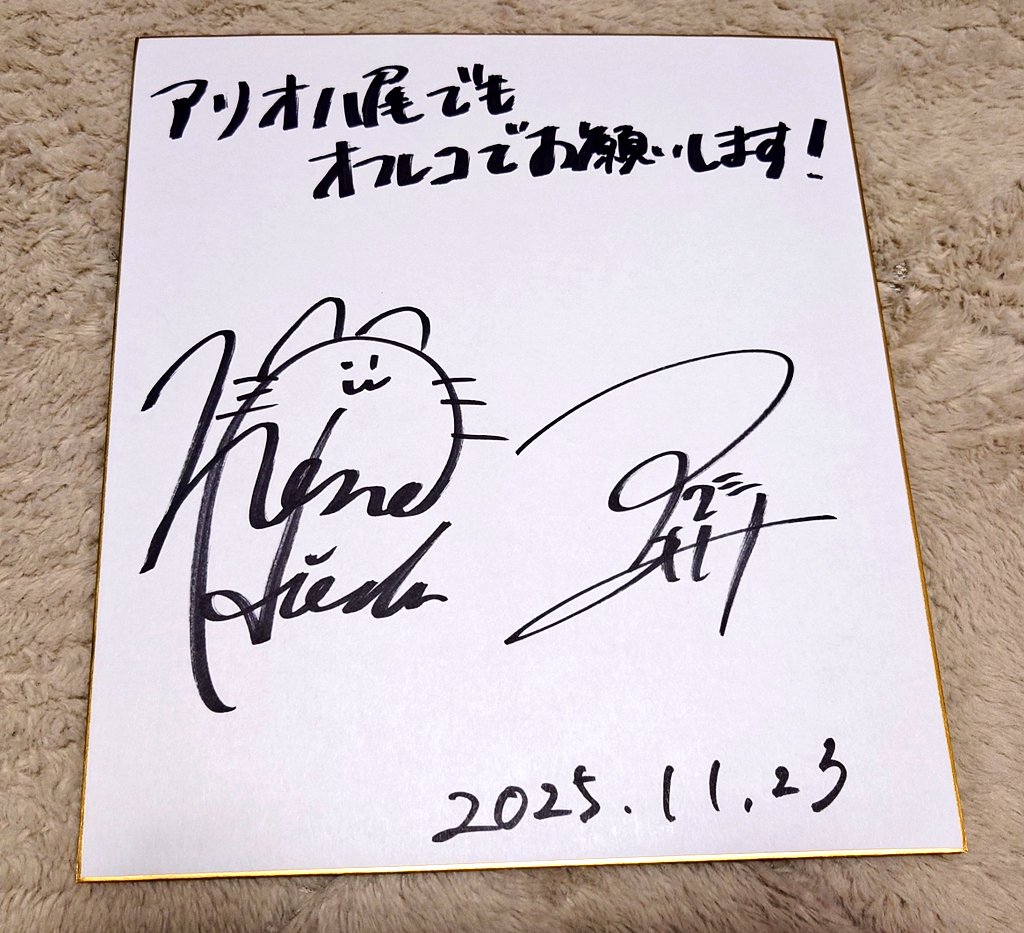 アリオ八尾でも
オフレコでお願いします!
Nene
Hieda
2025.11.23